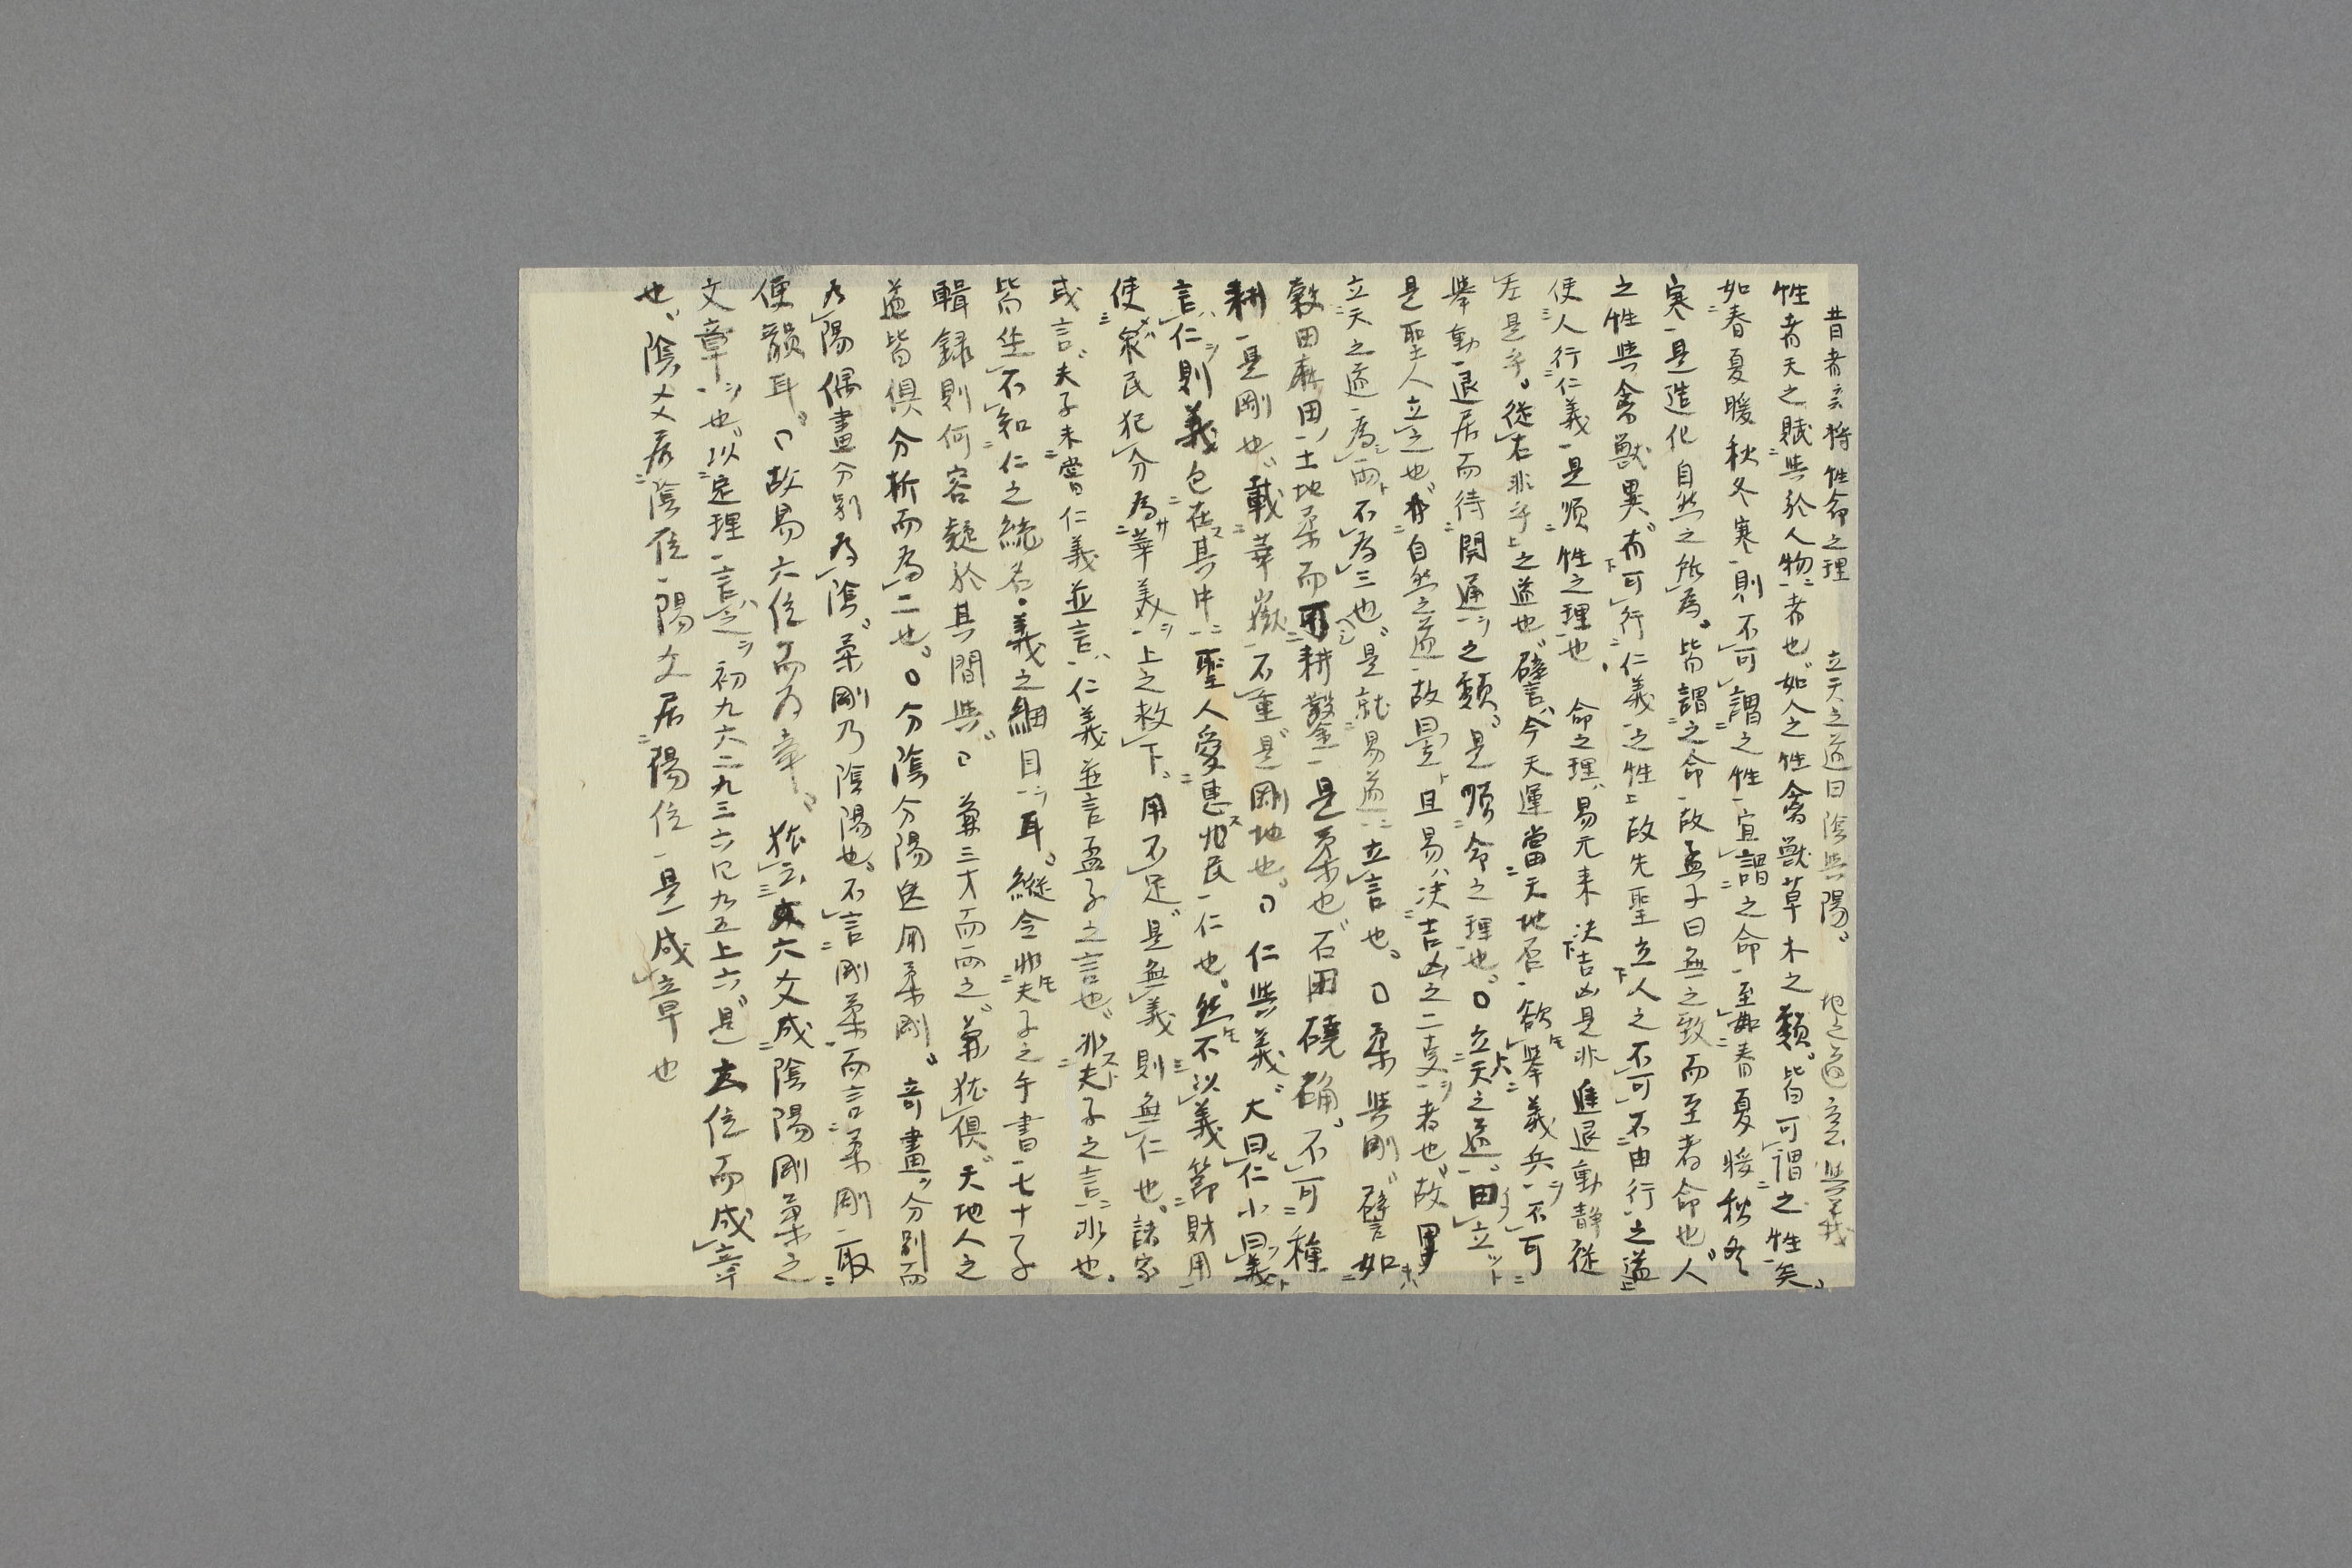 昔者云々将性命之理　立天之道曰陰与陽。地之道云々与義
性者天之賦与於人物者也。如人之性禽獣草木之類。皆可謂之性矣。
如春夏暖秋冬寒則不可謂之性宜謂之命至春夏暖秋冬
寒是造化自然之所為。皆謂之命故孟子曰無之致而至者命也。人
之性与禽獣異。有可行仁義之性故先聖立人之不可不由行之道
使人行仁義是順性之理也、命之理、易元来決吉凶是非進退動静従
左是乎。従右非乎之道也。譬言今天運当天地否欲挙義兵不可
挙動退居而待開通之類。是順命之理也。〇立天之道。由立
是聖人立之也。自然之道故曰且易決吉凶之二支者也。故
立天之道為両不為三也。是就易道立言也。〇柔与剛。譬如
穀田麻田土地柔而可耕鑿是柔也。石田磽确。不可種
耕是剛也。載華嶽不重是剛地也。〇仁与義。大曰仁小曰義
言仁則義包在其中聖人愛恵兆民仁也。然不以義節財用
使衆民犯分為華美上之救下。用不足是無義則無仁也。諸家
或言夫子未嘗仁義並言仁義並言孟子之言也。非夫子之言非也。
皆坐不知仁之統名。義之細目耳。縦令非夫子之手書七十子
輯録則何容疑於其間与。〇兼三才而両之。兼猶倶。天地人之
道皆倶分析而為二也。〇分陰分陽迭用柔剛。奇画分別而
為陽偶画分別為陰。柔剛乃陰陽也。不言剛柔而言柔剛取
便韻耳。〇故易六位而为章。猶云六爻成陰陽剛柔之
文章也。以定理言之初九六二九三六四九五上六。是六位而成章
也、陰爻居陰位陽爻居陽位是成章也